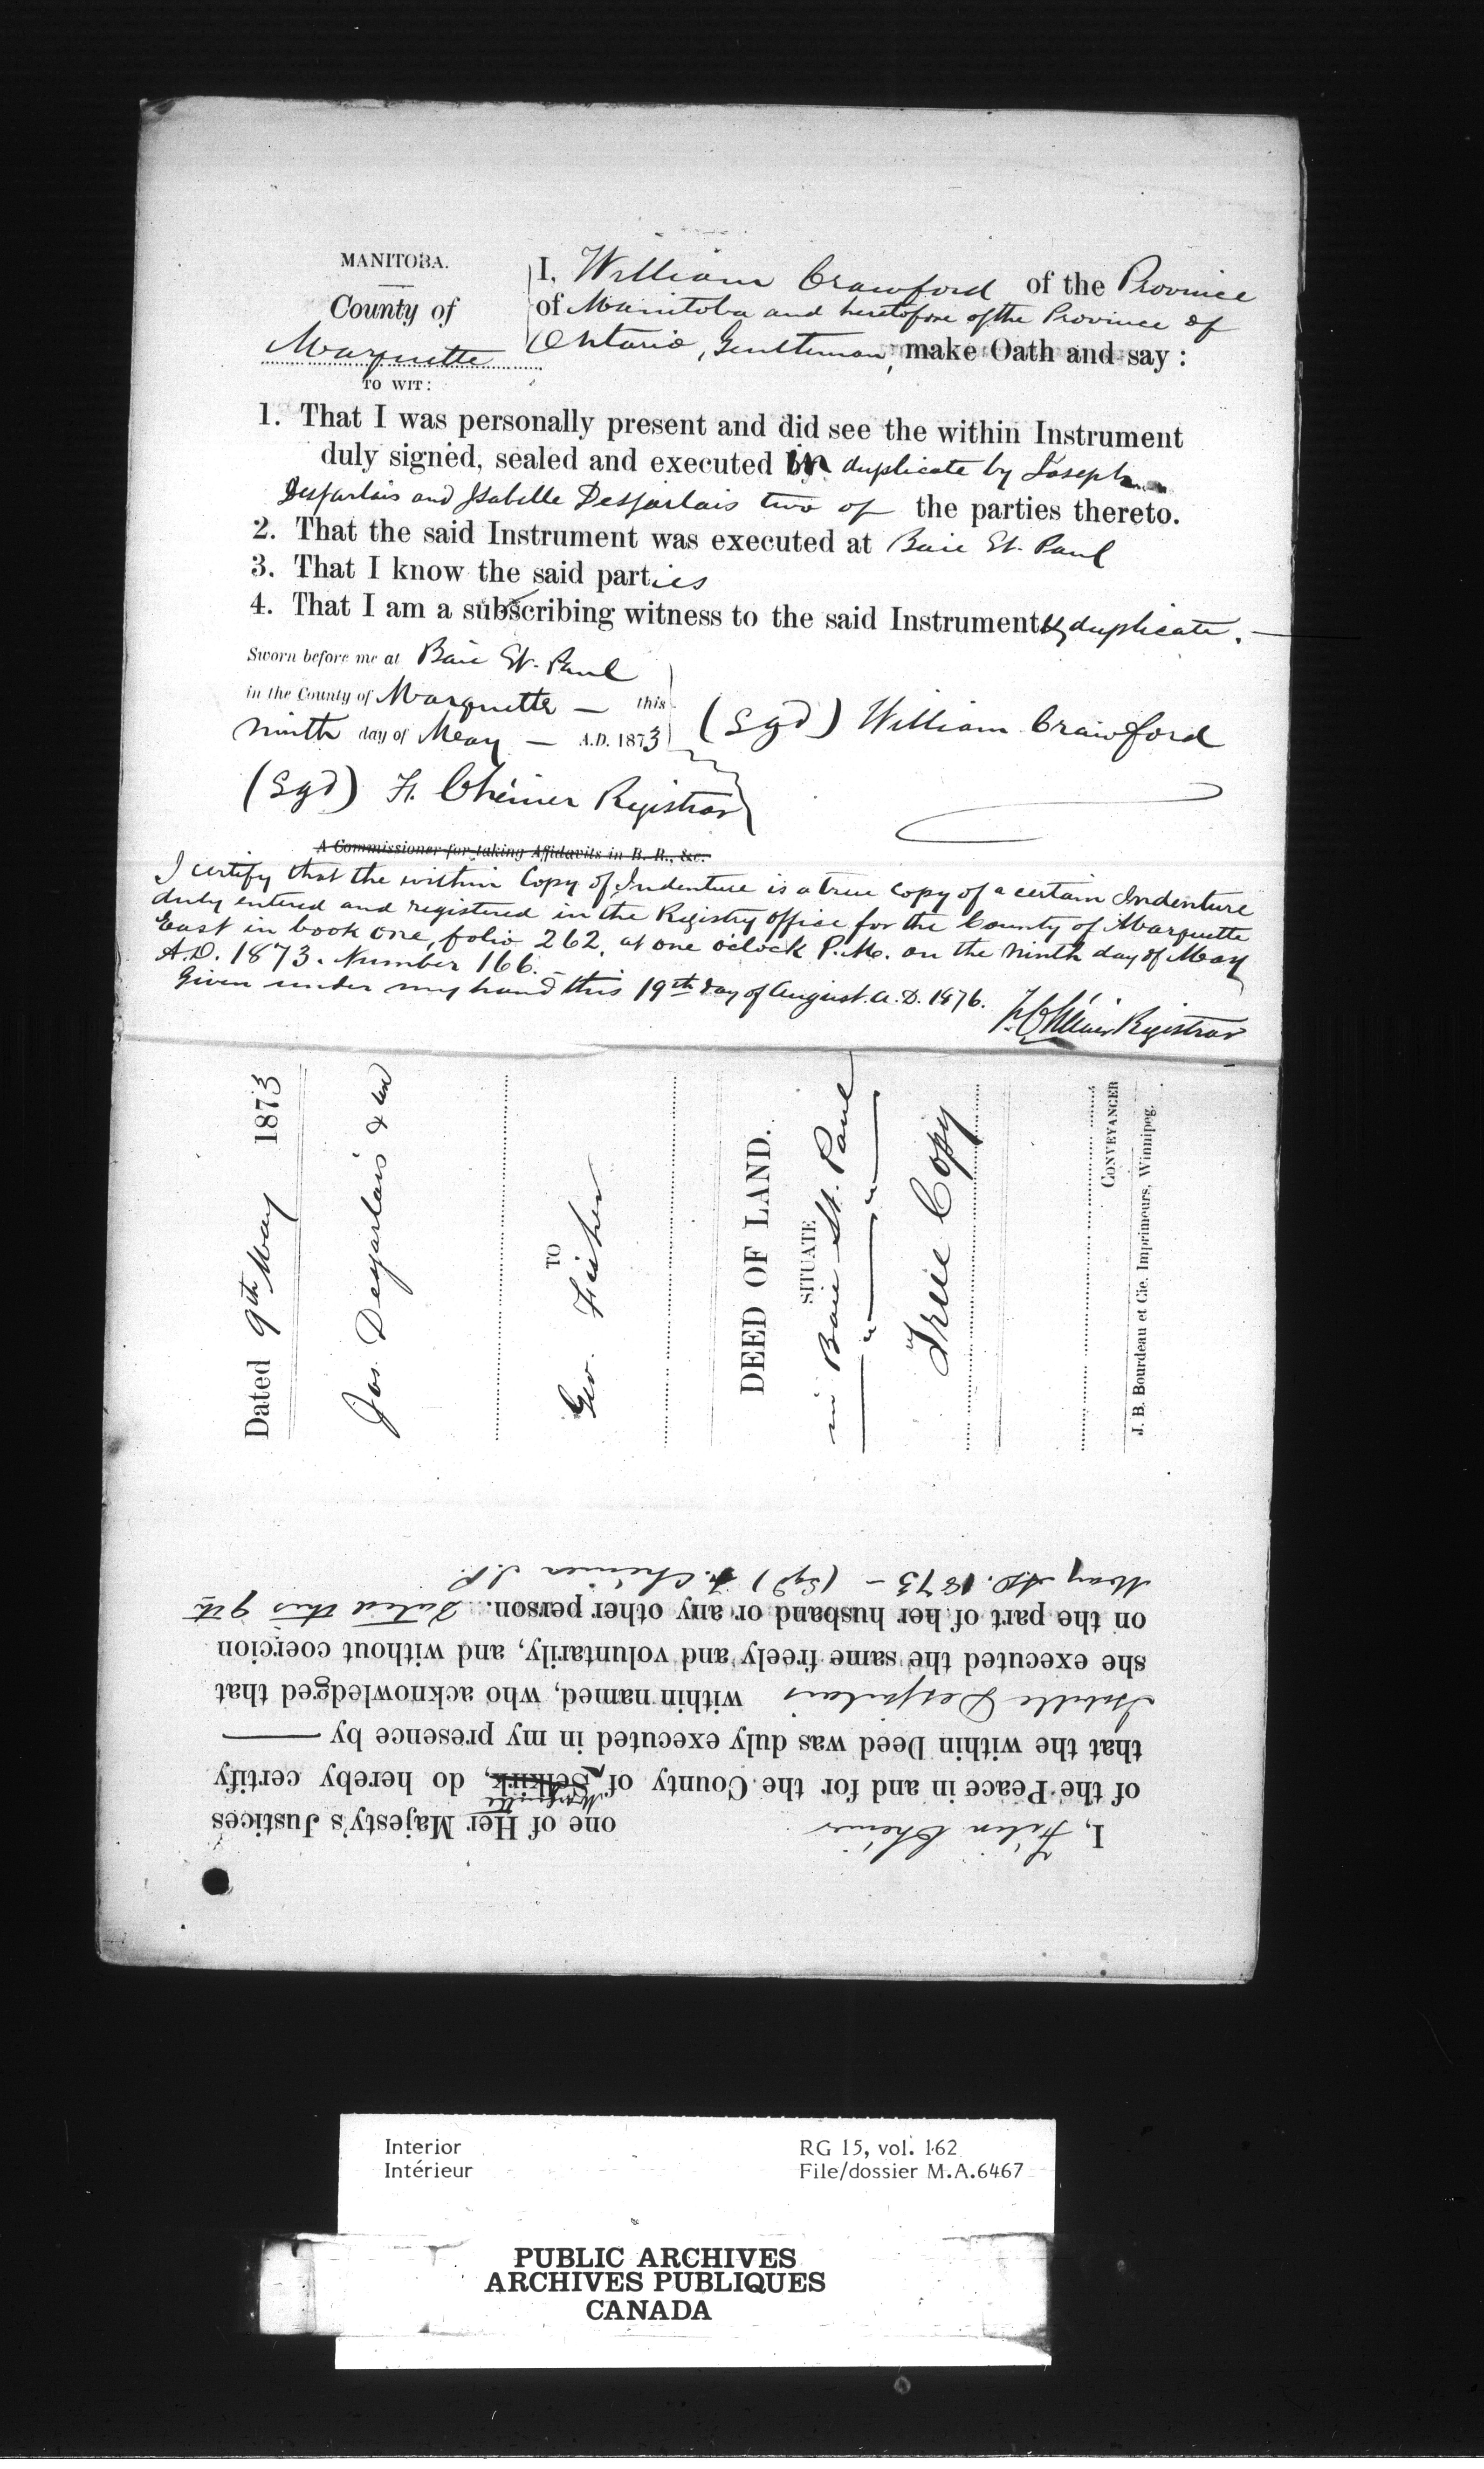 MANITOBA.
County of
Marquette
TO WIT:
I, William Crawford of the Province
of Manitoba and heretofore of the Province of
Ontario, Gentleman, make Oath and say:
1. That I was personally present and did see the within Instrument
duly signed, sealed and executed in duplicate by Joseph
Desjarlais and Isabelle Desjarlais two of the parties thereto.
2. That the said Instrument was executed at Baie St. Paul
3. That I know the said parties
4. That I am a subscribing witness to the said Instrument & duplicate.
Sworn before me at Baie St. Paul
in the County of Marquette — this
ninth day of May — A.D. 1873
(Sgd) William Crawford
(Sgd) F. Chénier Registrar
A Commissioner for taking Affidavits in B. R., &c.
I certify that the within Copy of Indenture is a true copy of a certain Indenture
duly entered and registered in the Registry office for the County of Marquette
East in book one, folio 262, at one o'clock P.M. on the ninth day of May
A.D. 1873. Number 166.
Given under my hand this 19th day of August. A.D. 1876.
F. Chénier Registrar
Dated 9th May 1873
Jos. Desjarlais & ux
TO
Geo. Fisher
DEED OF LAND.
SITUATE
in Baie St. Paul
True Copy
CONVEYANCER
J. B. Bourdeau et Cie. Imprimeurs, Winnipeg.
I, Félix Chénier one of Her Majesty's Justices
of the Peace in and for the County of Selkirk, Marquette do hereby certify
that the within Deed was duly executed in my presence by
Isabelle Desjarlais within named, who acknowledged that
she executed the same freely and voluntarily, and without coercion
on the part of her husband or any other person. Dated this 9th
May A.D. 1873 — (Sgd) F. Chénier J.P.
Interior
Intérieur
RG 15, vol. 162
File/dossier M.A.6467
PUBLIC ARCHIVES
ARCHIVES PUBLIQUES
CANADA